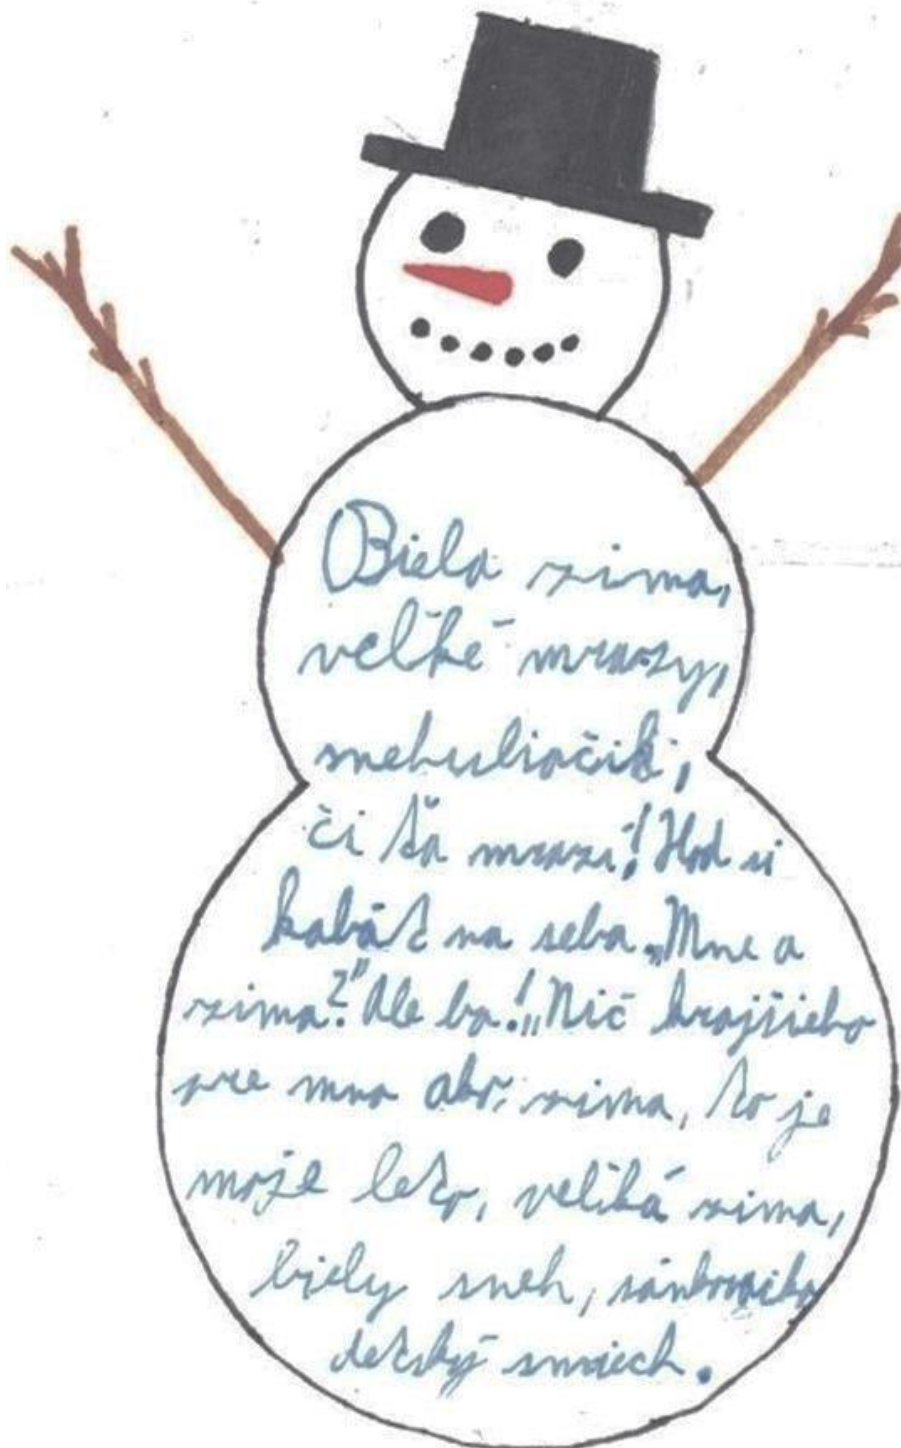 Biela zima,
veľké mrazy,
snehuliačik,
či ťa mrazí! Hoď si
kabát na seba. „Mne a
zima?" Ale ba! „Nič krajšieho
pre mňa ako zima, to je
moje leto, veliká zima,
biely sneh, sánkovačka
detský smiech.